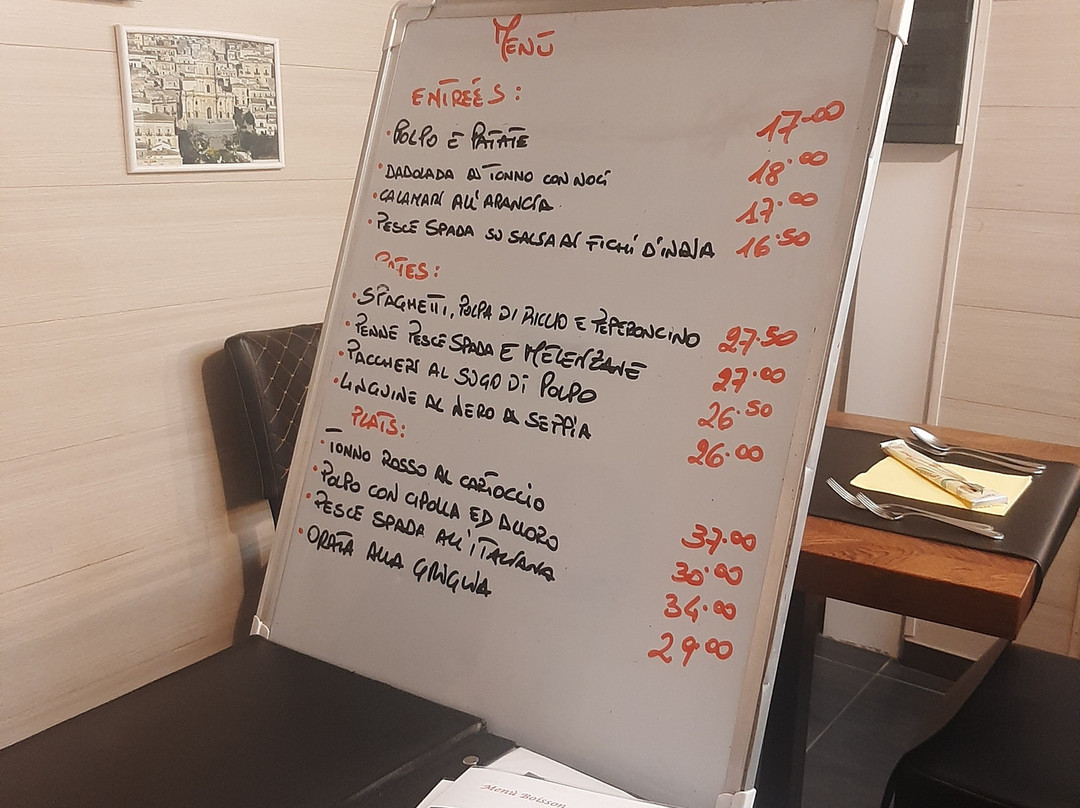 MENÙ
ENTREÉS:
• POLPO E PATATE 17.00
• DADOLADA DI TONNO CON NOCI 18.00
• CALAMARI ALL'ARANCIA 17.00
• PESCE SPADA SU SALSA DI FICHI D'INDIA 16.50
PATES:
• SPAGHETTI, POLPA DI RICCIO E PEPERONCINO 27.50
• PENNE PESCE SPADA E MELENZANE 27.00
• PACCHERI AL SUGO DI POLPO 26.50
• LINGUINE AL NERO DI SEPPIA 26.00
PLATS:
• TONNO ROSSO AL CARTOCCIO 37.00
• POLPO CON CIPOLLA ED ALLORO 30.00
• PESCE SPADA ALL'ITALIANA 34.00
• ORATA ALLA GRIGLIA 29.00
Menù Boisson